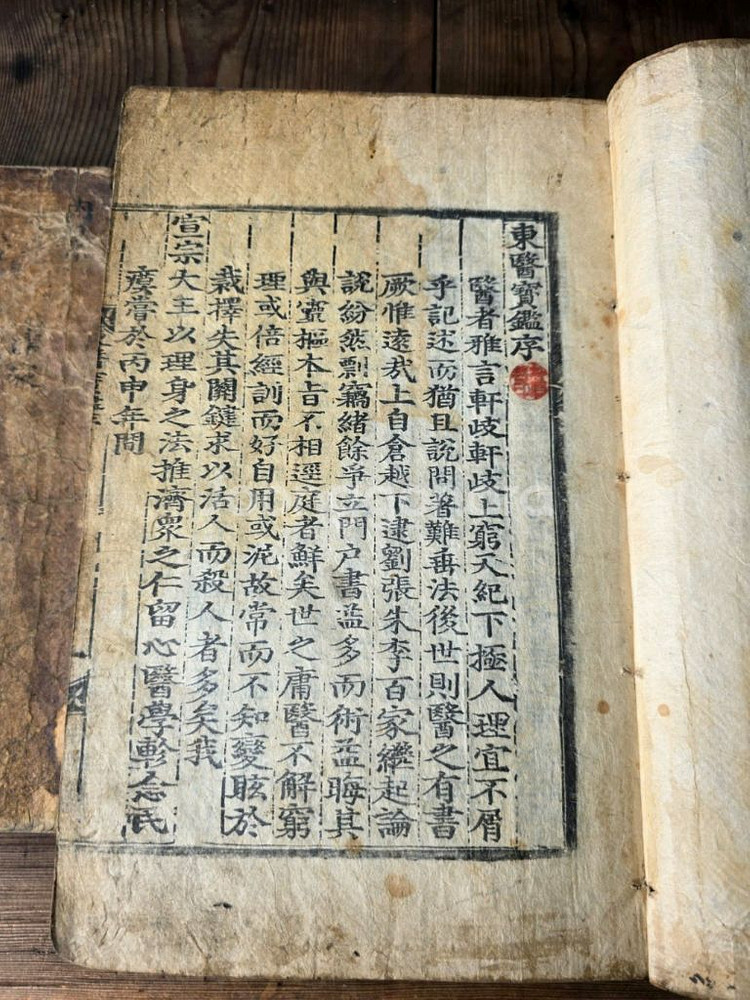 東醫寶鑑序
醫者雅言軒歧軒歧上窮天紀下極人理宜不屑
乎記述而猶且說問著難垂法後世則醫之有書
厥惟遠哉上自倉越下逮劉張朱李百家繼起論
說紛然剽竊緒餘爭立門戶書益多而術益晦其
與靈樞本旨不相逕庭者鮮矣世之庸醫不解窮
理或倍經訓而好自用或泥故常而不知變眩於
裁擇失其關鍵求以活人而殺人者多矣我
宣宗大王以理身之法推濟衆之仁留心醫學軫念民
瘼嘗於丙申年間